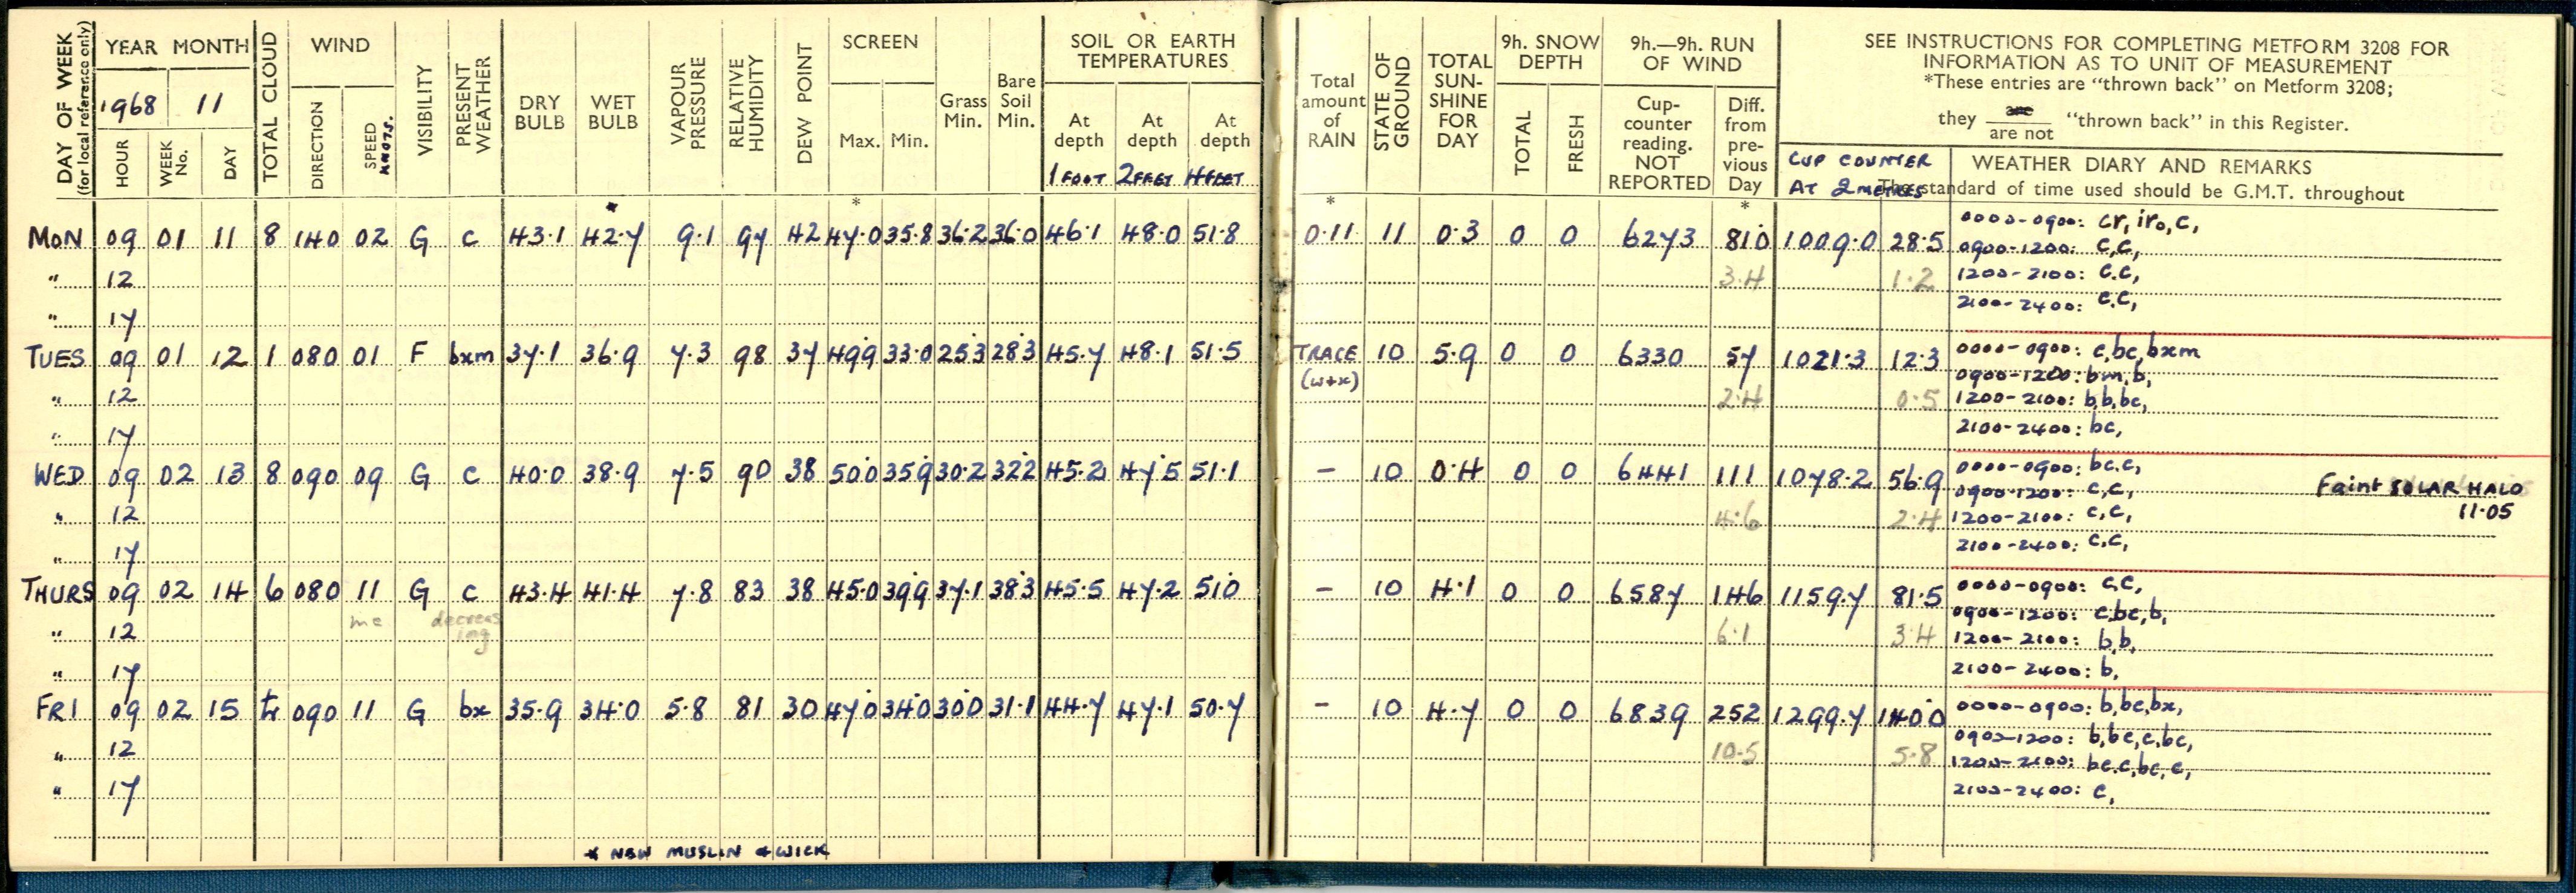 DAY OF WEEK (for local reference only)
YEAR MONTH
1968 11
HOUR WEEK No. DAY
TOTAL CLOUD
WIND
DIRECTION SPEED KNOTS.
VISIBILITY
PRESENT WEATHER
DRY BULB
WET BULB
VAPOUR PRESSURE
RELATIVE HUMIDITY
DEW POINT
SCREEN
Max. Min.
Grass Min.
Bare Soil Min.
SOIL OR EARTH TEMPERATURES
At depth At depth At depth
1 FOOT 2 FEET 4 FEET
Total amount of RAIN
STATE OF GROUND
TOTAL SUN-SHINE FOR DAY
9h. SNOW DEPTH
TOTAL FRESH
9h.—9h. RUN OF WIND
Cup-counter reading. NOT REPORTED
Diff. from pre-vious Day
SEE INSTRUCTIONS FOR COMPLETING METFORM 3208 FOR
INFORMATION AS TO UNIT OF MEASUREMENT
*These entries are "thrown back" on Metform 3208;
they are / are not "thrown back" in this Register.
CUP COUNTER
AT 2 METRES
WEATHER DIARY AND REMARKS
The standard of time used should be G.M.T. throughout
* * * *
MON 09 01 11 8 140 02 G c 43.1 42.7 9.1 97 42 47.0 35.8 36.2 36.0 46.1 48.0 51.8 0.11 11 0.3 0 0 6273 81 1009.0 28.5 0000-0900: cr, iro, c,
0900-1200: c,c,
" 12 3.4 1.2 1200-2100: c.c,
2100-2400: c.c,
" 17
TUES 09 01 12 1 080 01 F bxm 37.1 36.9 7.3 98 37 49.9 33.0 25.3 28.3 45.7 48.1 51.5 TRACE 10 5.9 0 0 6330 57 1021.3 12.3 0000-0900: c,bc,bxm
(w+x) 0900-1200: bm,b,
" 12 2.4 0.5 1200-2100: b,b,bc,
" 17 2100-2400: bc,
WED 09 02 13 8 090 09 G c 40.0 38.9 7.5 90 38 50.0 35.9 30.2 32.2 45.2 47.5 51.1 - 10 0.4 0 0 6441 111 1078.2 56.9 0000-0900: bc.c,
0900-1200: c,c, Faint SOLAR HALO
" 12 4.6 2.4 1200-2100: c,c, 11.05
" 17 2100-2400: c,c,
THURS 09 02 14 6 080 11 G c 43.4 41.4 7.8 83 38 45.0 39.9 37.1 38.3 45.5 47.2 51.0 - 10 4.1 0 0 6587 146 1159.7 81.5 0000-0900: c,c,
me decreasing 0900-1200: c,bc,b,
" 12 6.1 3.4 1200-2100: b,b,
" 17 2100-2400: b,
FRI 09 02 15 tr 090 11 G bx 35.9 34.0 5.8 81 30 47.0 34.0 30.0 31.1 44.7 47.1 50.7 - 10 4.7 0 0 6839 252 1299.7 140.0 0000-0900: b,bc,bx,
0900-1200: b,bc,c,bc,
" 12 10.5 5.8 1200-2100: bc.c,bc,c,
" 17 2100-2400: c,
* NEW MUSLIN & WICK